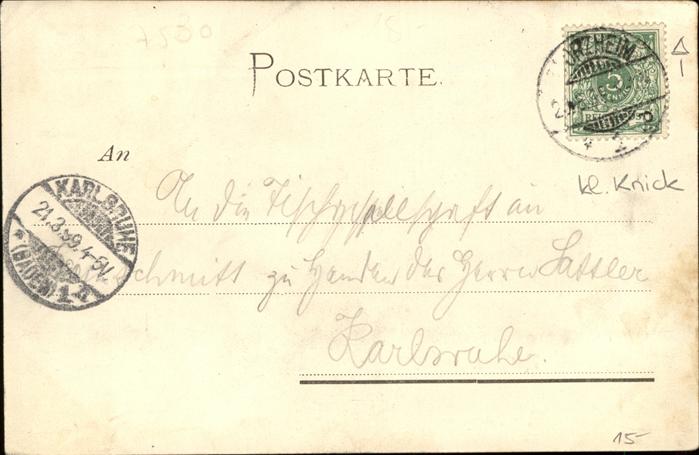 7530
15
POSTKARTE.
PFORZHEIM
An
kl. Knick
KARLSRUHE
21.3.99.4-5N.
*(BADEN)1.a
An die Tischgesellschaft an
zu Handen des Herrn Sattler
Karlsruhe.
15-